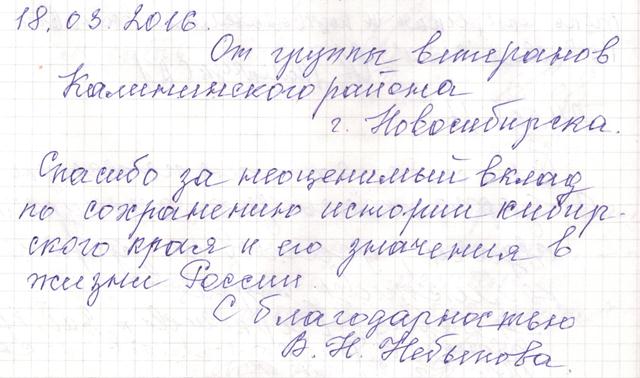 18.03.2016.
От группы ветеранов
Калининского района
г. Новосибирска.
Спасибо за неоценимый вклад
по сохранению истории сибир-
ского края и его значения в
жизни России.
С благодарностью
В. Н. Небыкова.